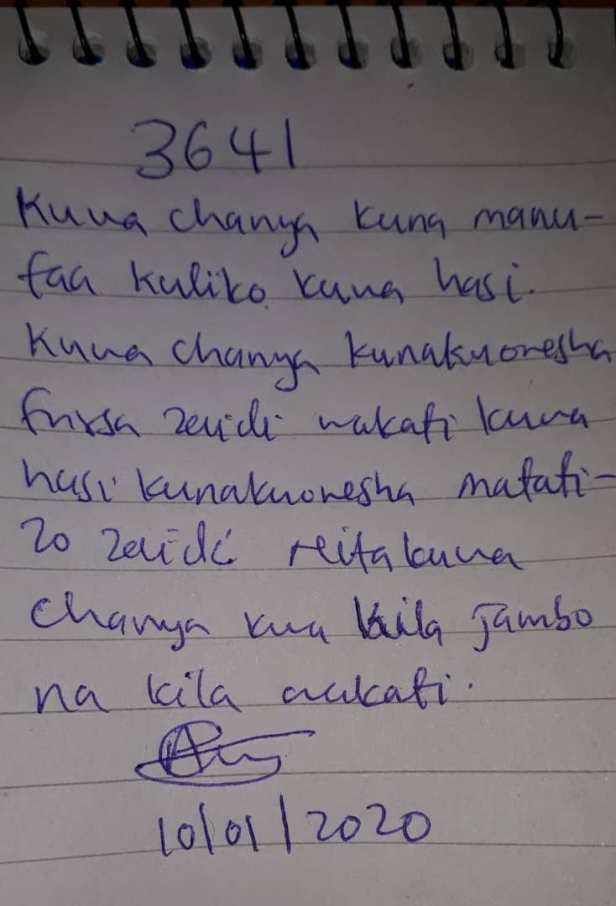 3641
Kuwa chanya kuna manu-
faa kuliko kuwa hasi.
Kuwa chanya kunakuonesha
fursa zaidi wakati kuwa
hasi kunakuonesha matati-
zo zaidi. Nitakuwa
chanya kwa kila jambo
na kila wakati.
10/01/2020